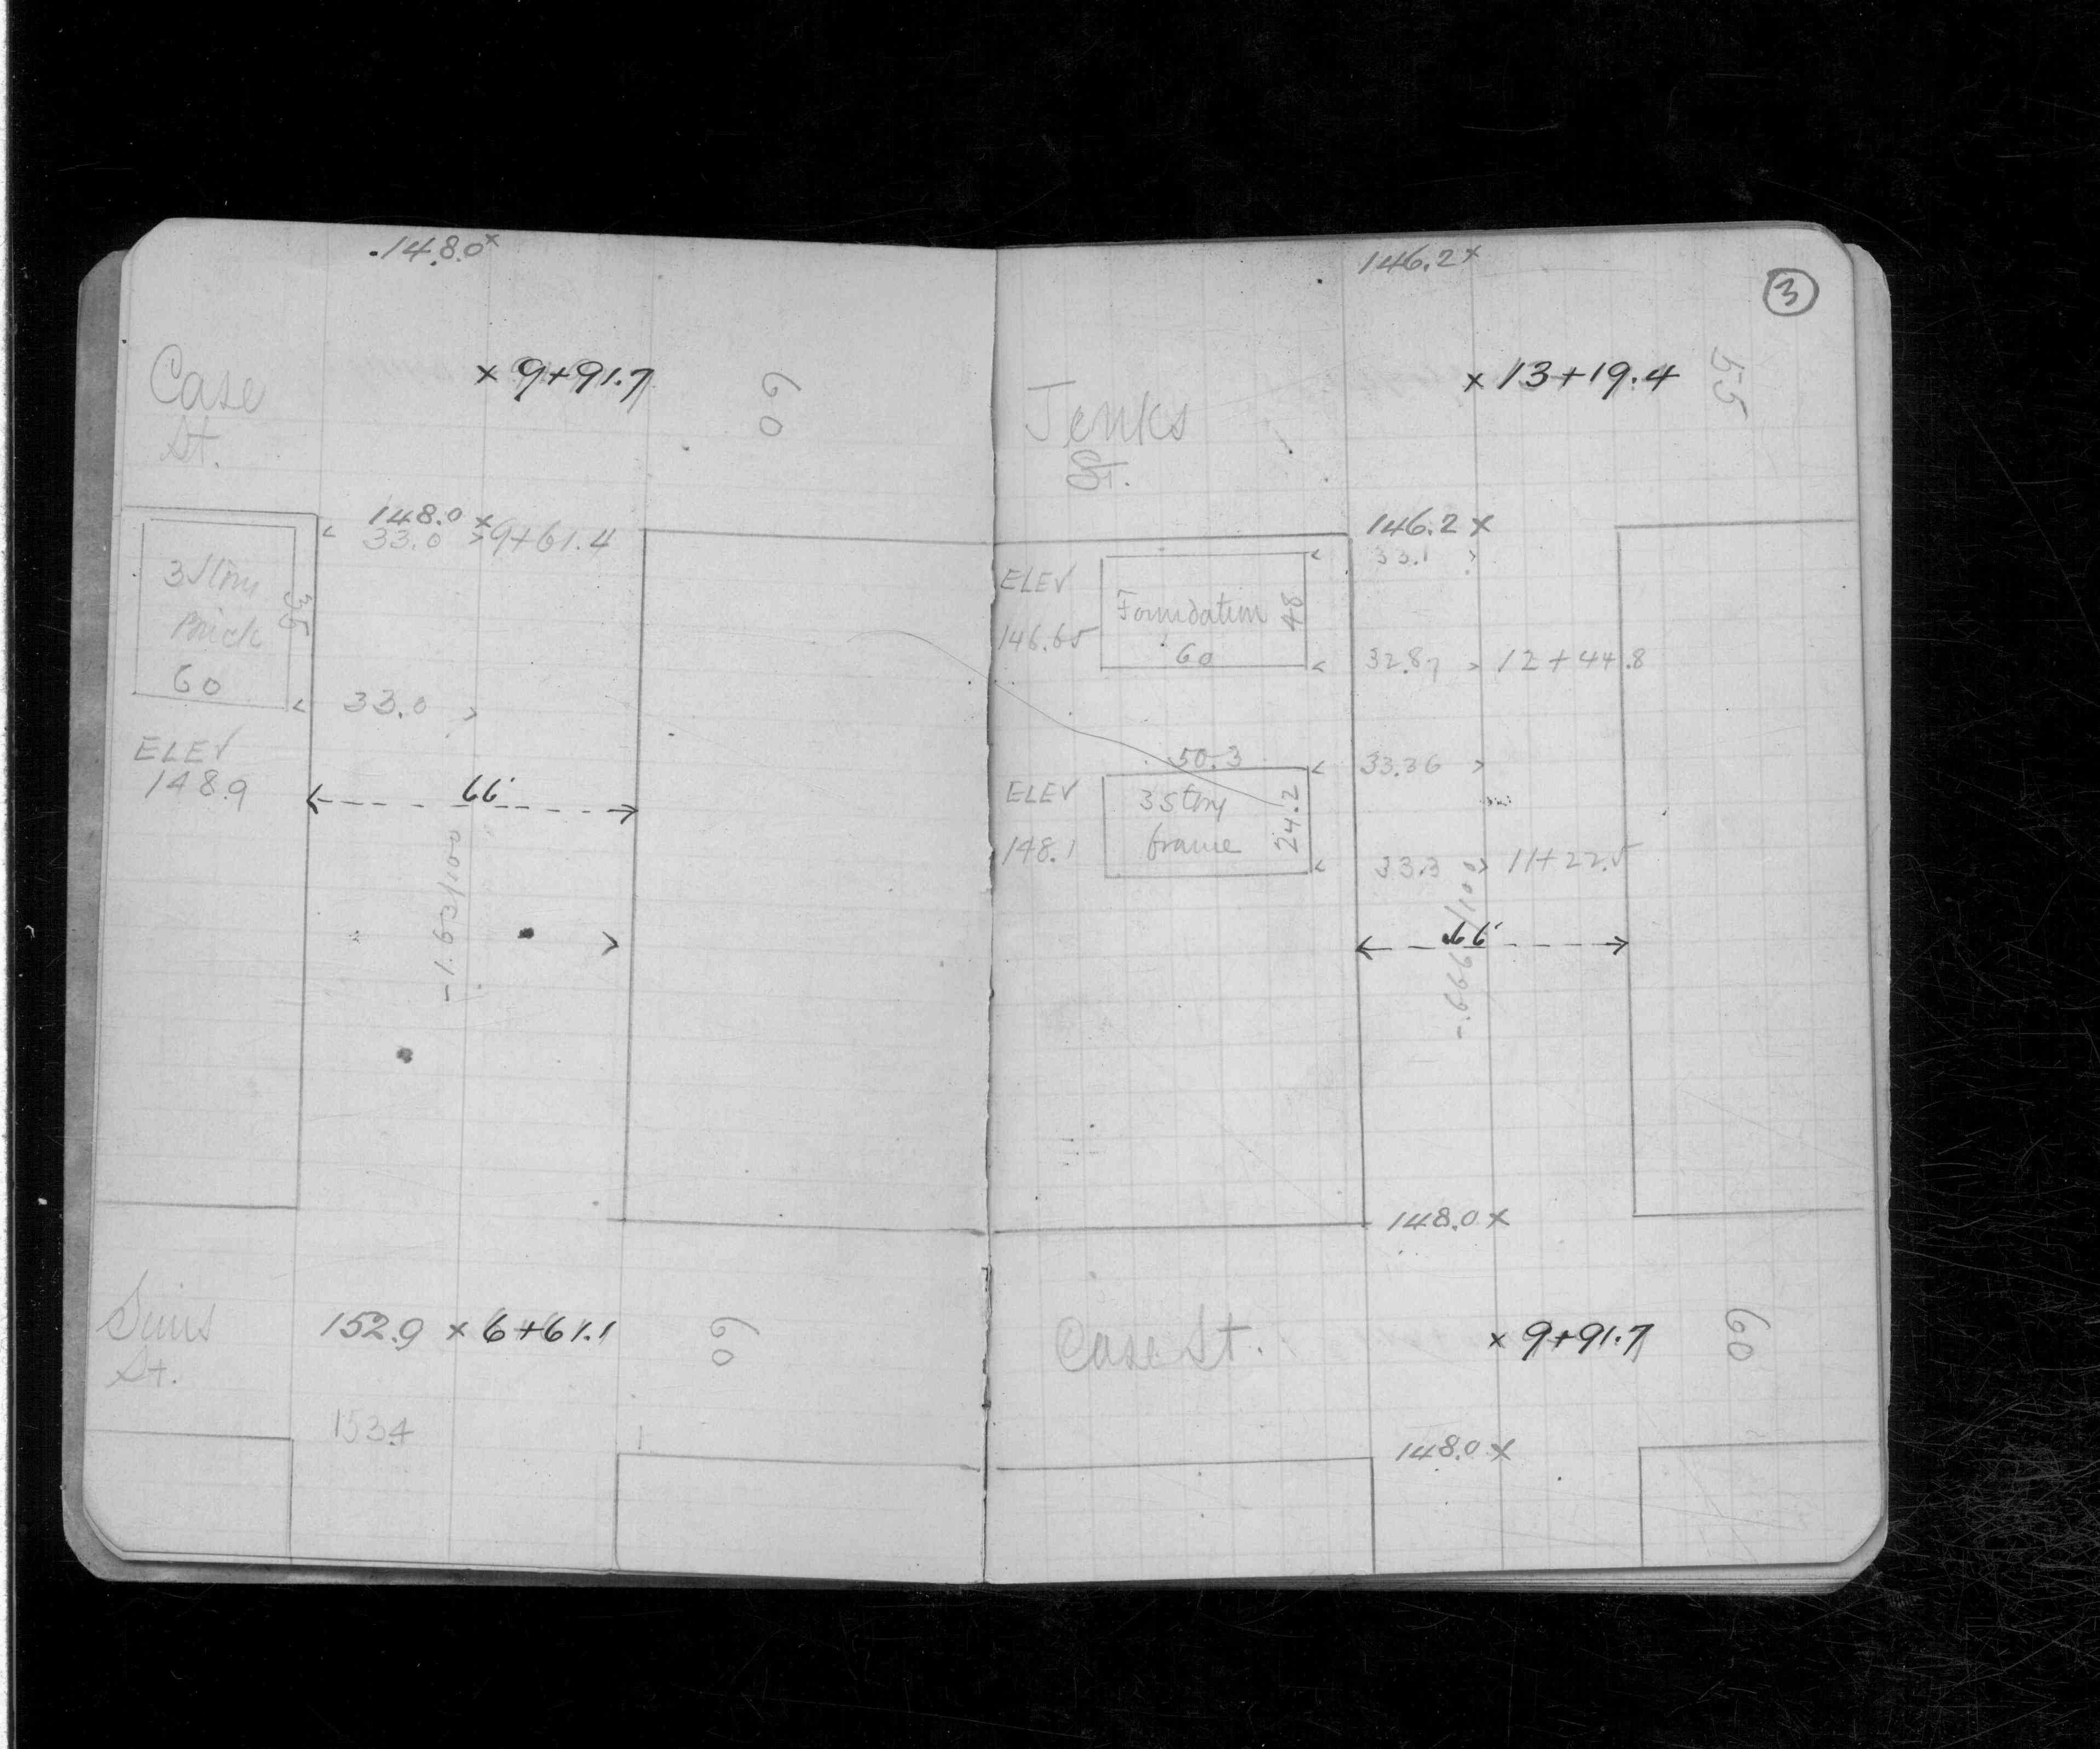 .148.0x
Case
St.
x 9+91.7
60
148.0 x
< 33.0 > 9+61.4
3 Story
Brick
60
35
< 33.0 >
ELEV
148.9
66'
-1.63/100
Sims
St.
152.9 x 6+61.1
60
153.4
146.2x
3
Jenks
St.
x 13+19.4
55
146.2 x
< 33.1 >
ELEV
146.65
Foundation
60
48
< 32.87 > 12+44.8
50.3
< 33.36 >
ELEV
148.1
3 Story
frame
24.2
< 33.3 > 11+22.5
66'
-.666/100
148.0 x
Case St.
x 9+91.7
60
148.0 x